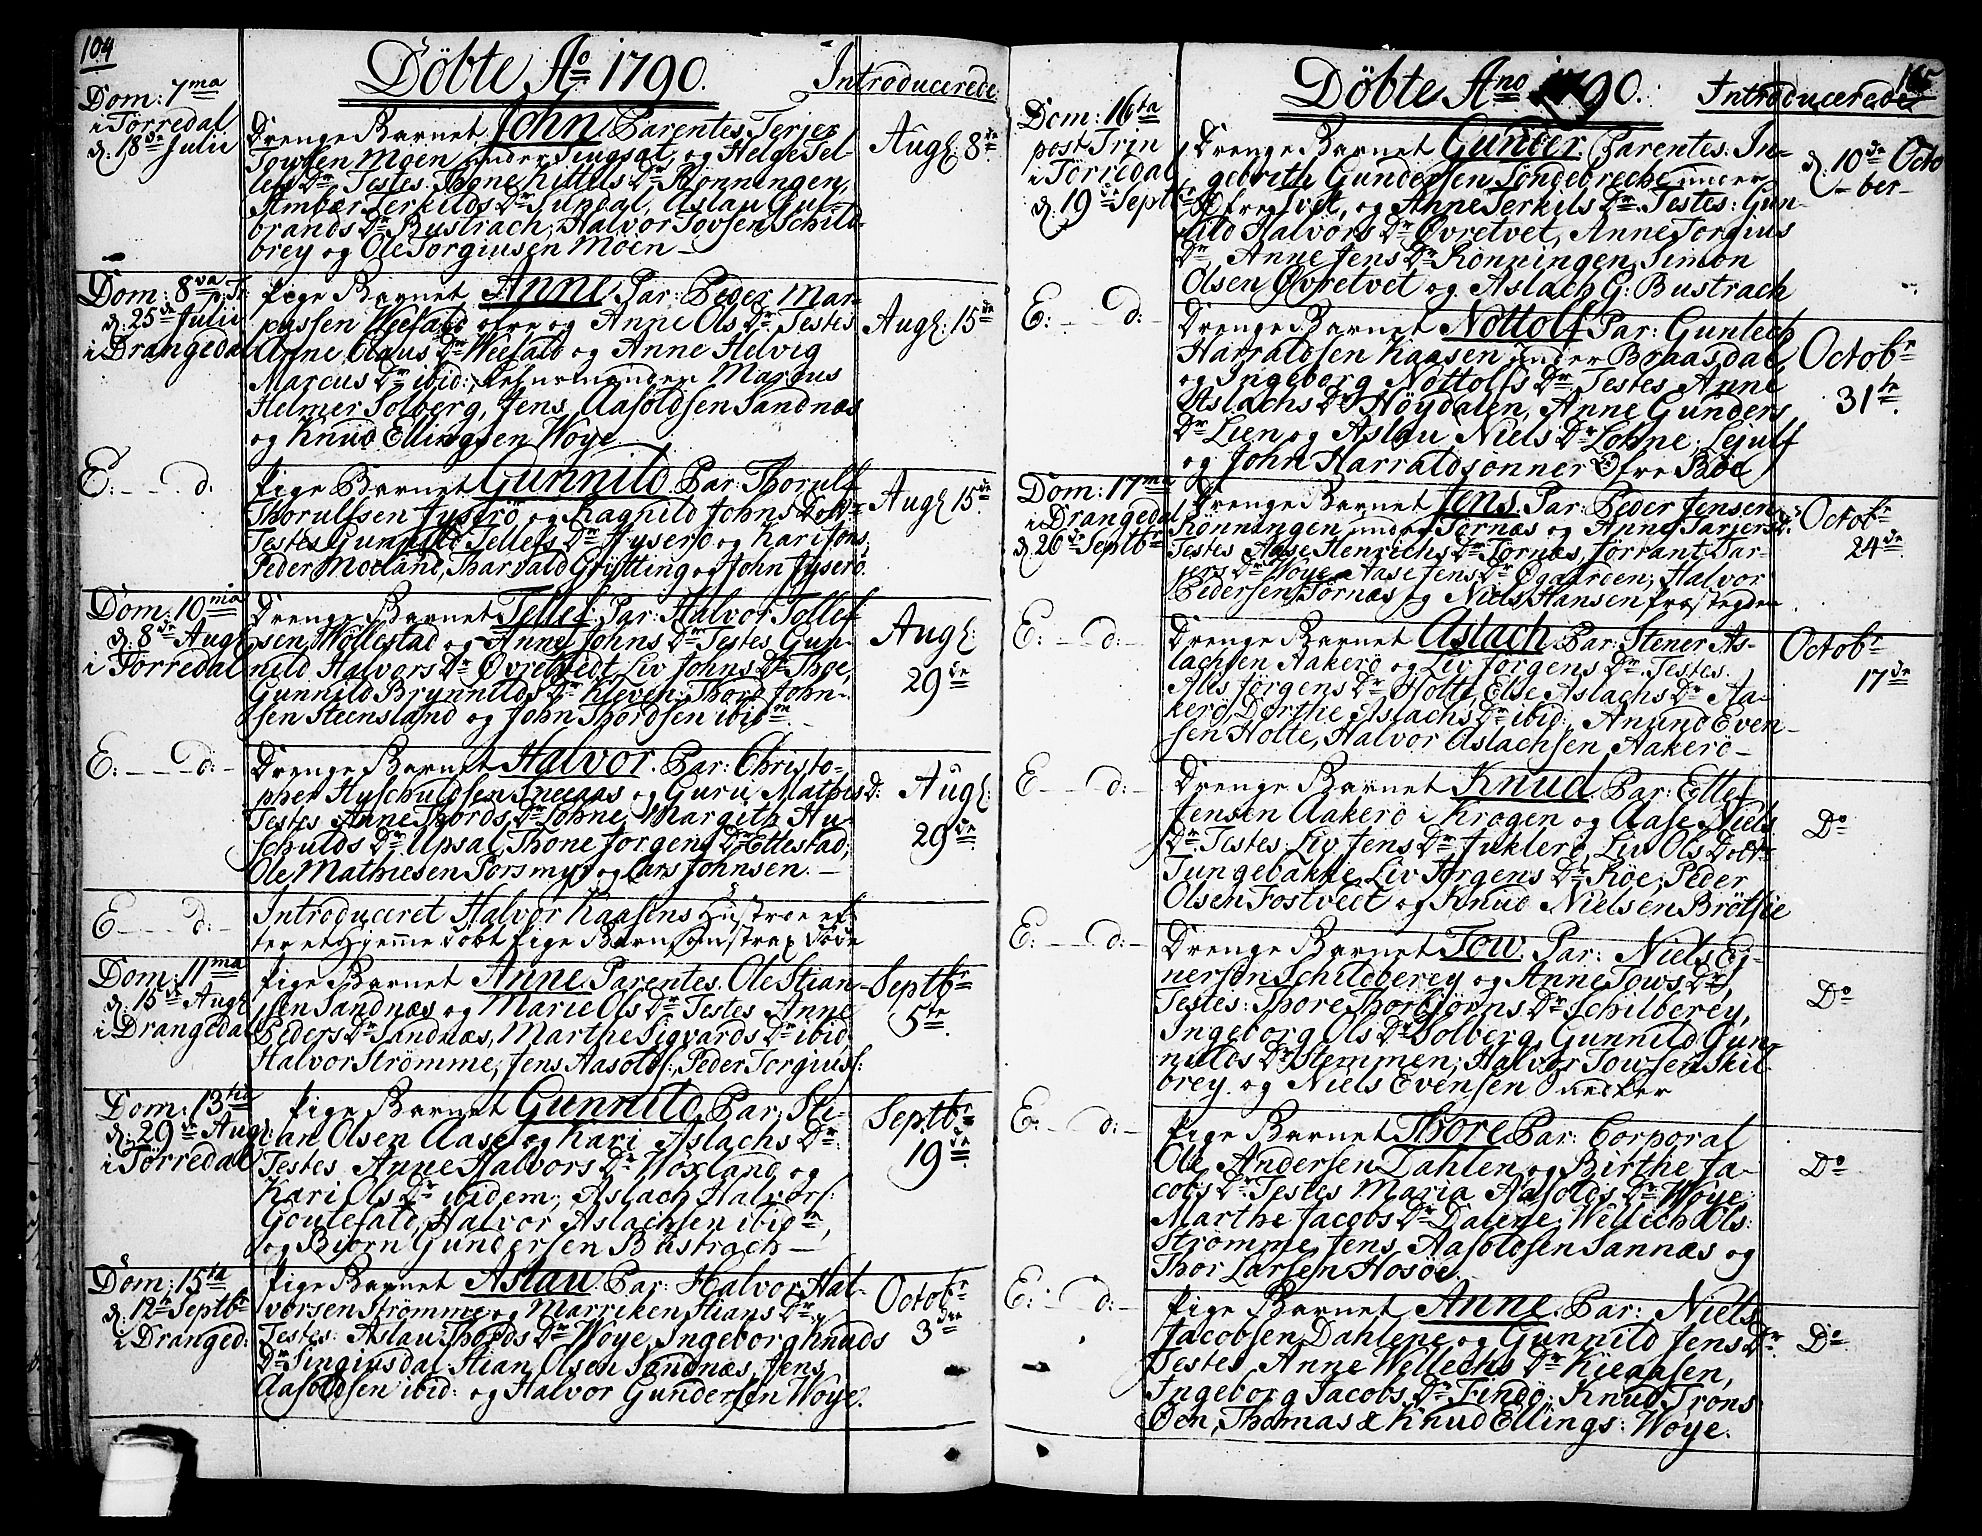 104
Döbte Ao 1790.
Introducerede
Dom: 7ma
i Törredal
d: 18de Julii
Drenge Barnet John. Parentes. Terjer
Towsen Moen under Tingsat, og Helge Tel-
lefs Dr. Testes. Thone Kittels Dr Rönningen,
Ambær Terkilds Dr Sundal, Aslau Gul-
brands Dr Bustrach, Halvor Tovsen Schild-
brey og Ole Torgiusen Moen
Augl: 8de
Dom: 8va p: Tr
d: 25de Julii
i Drangedal
Pige Barnet Anne. Par: Peder Mar-
cussen Weefald ofre og Anne Ols Dr Testes
Anne Olaus Dr Weefald og Anne Helvig
Marcus Dr ibid:, Marcus
Helmer Solberg, Jens Aasoldsen Sandnæs
og Knud Ellingsen Woye
Augl: 15de
E: - - d:
Pige Barnet Gunnild. Par: Thorulf
Thorulfsen Jyserö og Ragnild Johns Dottr
Testes Gunnild Tellefs Dr Jyserö og Kari ibid,
Peder Moeland, Tharald Gryting og John Jyserö.
Augl: 15de
Dom: 10ma
d: 8de Augl
i Törredal
Drenge Barnet Tellef. Par: Halvor Tollef
sen Wöllestad og Anne Johns Dr Testes Gun-
nild Halvors Dr Øvrebödt, Liv Johns Dr Thoe,
Gunnild Brynnilds Dr Kleven, Thord John-
sen Steensland og John Thordsen ibidm
Augl:
29de
E: - - d: -
Drenge Barnet Halvor. Par: Christo-
pher Hyschuldsen Sneeaas og Guru Mathis D:
Testes Anne Thords Dr Lohne, Margith Hu-
schulds Dr Upsal, Thone Jörgens Dr Ettestad,
Ole Mathiesen Porsmyr og Lars Johnsen. -
Augl:
29de
E - - d: -
Introduceret Halvor Kaasens Hustroe ef-
ter et Hjemme döbt Pige Barn, som strax döde
Dom: 11ma
d: 15de Augl
i Drangedal
Pige Barnet Anne. Parentes. Ole Stian-
sen Sandnæs og Marie Ols Dr Testes Anne
Peders Dr Sandnæs, Marthe Sigvards Dr ibid,
Halvor Strömme, Jens Aasolds:, Peder Torgiuss:
Septbr
5te
Dom: 13tia
d: 29de Augl:
i Törredal
Pige Barnet Gunnild. Par: Sti-
an Olsen Aase og Kari Aslachs Dr.
Testes Anne Halvors Dr Woxland og
Kari Ols Dr ibidem, Aslach Halvors:
Goulefald, Halvor Aslachsen ibidm,
og Biörn Gundersen Bustrach
Septbr
19de
Dom: 15ta
d: 12te Septbr
i Dranged:
Pige Barnet Aslau. Par: Halvor Hal-
vorsen Strömme og Marriken Stians Dr.
Testes: Aslau Thords Dr Woye, Ingeborg Knuds
Dr Singiusdal, Stian Olsen Sandnæs, Jens
Aasoldsen ibid: og Halvor Gundersen Woye.
Octobr
3die
105
Döbte Ano 1790.
Introducerede
Dom: 16ta
post Trin
i Törredal
d: 19de Septbr
Drenge Barnet Gunder. Parentes: In-
gebrith Gundersen Töndebreche under
Ofre Tvet, og Anne Terkils Dr. Testes: Gun-
nild Halvors Dr Øvretvet, Anne Torgius
Dr, Anne Jens Dr Rönningen, Simon
Olsen Øvretvet og Aslach G: Bustrach
d: 10de Octo
- ber -
E: - - d: -
Drenge Barnet Nottolf. Par: Guntech
Harraldsen Kaasen under Braasdal
og Ingeborg Nottolfs Dr Testes Anne
Aslachs Dr Höydalen, Anne Gunders
Dr Lien og Aslau Niels Dr Lohne, Lejulf
og John Harraldsönner Öfre Böe
Octobr
31te.
Dom: 17ma
i Drangedal
d: 26de Septbr
Drenge Barnet Jens. Par: Peder Jensen
Rönningen under Tornæs og Anne Tarjers D:
Testes Aase Henrichs Dr Törnæs, Jörrant Tar-
jers Dr Woye, Aase Jens Dr Øgaarden, Halvor
Pedersen Törnæs og Niels Hansen Præstegden
Octobr
24de
E: - d: -
Drenge Barnet Aslach. Par: Stener As-
lachsen Aakerö og Liv Jörgens Dr. Testes.
Ales Jörgens Dr Holte, Else Aslachs Dr Aa-
kerö, Dorthe Aslachs Dr ibid:, Anund Even-
sen Holte, Halvor Aslachsen Aakerö
Octobr
17de
E - - d: -
Drenge Barnet Knud. Par: Ellef
Jensen Aakerö i Krogen og Aase Niels
Dr. Testes: Liv Jens Dr Juklerö, Liv Ols Dottr
Tungebakke, Liv Jörgens Dr Röe, Peder
Olsen Fostvedt og Knud Nielsen Brötsöe
Do
E: - - d: -
Drenge Barnet Tow. Par: Niels Ei-
nersön Schildberey og Anne Tows Dr,
Testes: Thore Thorbjörns Dr Schilberey,
Ingeborg Ols Dr Solberg, Gunnild Gun-
nulds Dr Stemmen, Halvor Towsen Skil-
brey og Niels Evensen
Do
E: - d: -
Pige Barnet Thore Par: Corporal
Ole Andersen Dahlen og Birthe Ja-
cobs Dr Testes Maria Aasolds Dr Woye,
Marthe Jacobs Dr Dalene, Wellich Ols:
Strömme, Jens Aasoldsen Sannæs og
Thor Larsen Hosöe.
Do
E: - d: -
Pige Barnet Anne. Par: Niels
Jacobsen Dahlene og Gunnild Jens Dr.
Testes Anne Wellechs Dr Kieaasen,
Ingeborg Jacobs Dr Findö, Knud Trons
Öen, Thomas & Knud Ellings: Woye.
Do